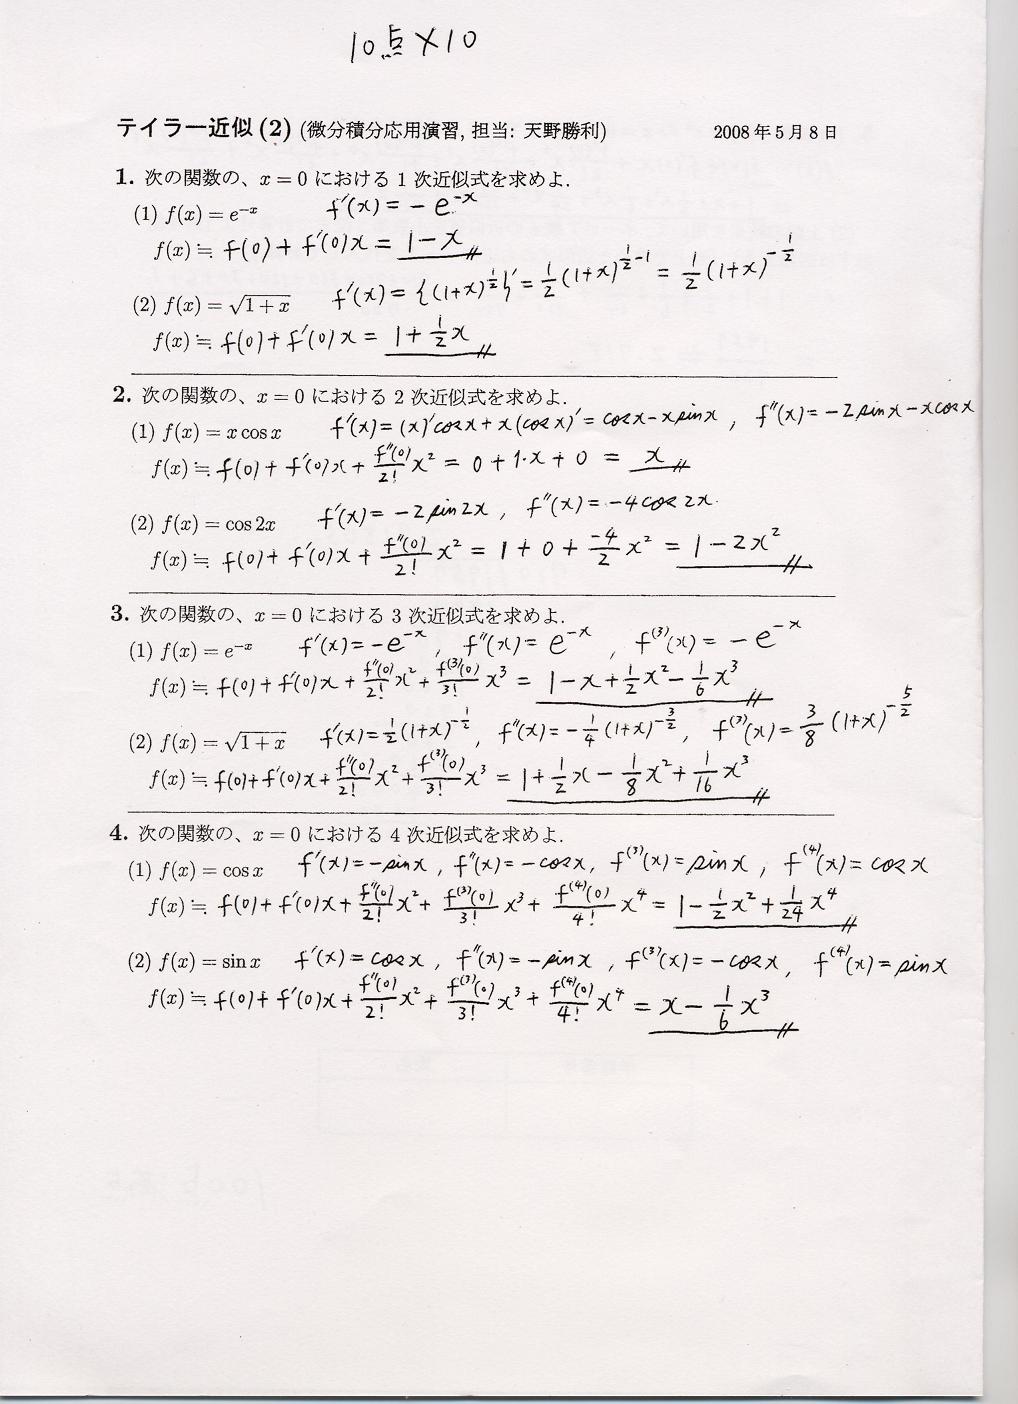 10点×10
テイラー近似 (2) (微分積分応用演習, 担当: 天野勝利) 2008 年 5 月 8 日
1. 次の関数の、x = 0 における 1 次近似式を求めよ.
(1) f(x) = e^{-x} f'(x) = -e^{-x}
f(x) ≒ f(0) + f'(0)x = 1 - x
(2) f(x) = √(1 + x) f'(x) = {(1+x)^{1/2}}' = 1/2 (1+x)^{1/2 - 1} = 1/2 (1+x)^{-1/2}
f(x) ≒ f(0) + f'(0)x = 1 + 1/2 x
2. 次の関数の、x = 0 における 2 次近似式を求めよ.
(1) f(x) = x cos x f'(x) = (x)'cos x + x(cos x)' = cos x - x sin x , f''(x) = -2 sin x - x cos x
f(x) ≒ f(0) + f'(0)x + f''(0)/2! x² = 0 + 1·x + 0 = x
(2) f(x) = cos 2x f'(x) = -2 sin 2x , f''(x) = -4 cos 2x
f(x) ≒ f(0) + f'(0)x + f''(0)/2! x² = 1 + 0 + -4/2 x² = 1 - 2x²
3. 次の関数の、x = 0 における 3 次近似式を求めよ.
(1) f(x) = e^{-x} f'(x) = -e^{-x} , f''(x) = e^{-x} , f^{(3)}(x) = -e^{-x}
f(x) ≒ f(0) + f'(0)x + f''(0)/2! x² + f^{(3)}(0)/3! x³ = 1 - x + 1/2 x² - 1/6 x³
(2) f(x) = √(1 + x) f'(x) = 1/2 (1+x)^{-1/2} , f''(x) = -1/4 (1+x)^{-3/2} , f^{(3)}(x) = 3/8 (1+x)^{-5/2}
f(x) ≒ f(0) + f'(0)x + f''(0)/2! x² + f^{(3)}(0)/3! x³ = 1 + 1/2 x - 1/8 x² + 1/16 x³
4. 次の関数の、x = 0 における 4 次近似式を求めよ.
(1) f(x) = cos x f'(x) = -sin x , f''(x) = -cos x , f^{(3)}(x) = sin x , f^{(4)}(x) = cos x
f(x) ≒ f(0) + f'(0)x + f''(0)/2! x² + f^{(3)}(0)/3! x³ + f^{(4)}(0)/4! x⁴ = 1 - 1/2 x² + 1/24 x⁴
(2) f(x) = sin x f'(x) = cos x , f''(x) = -sin x , f^{(3)}(x) = -cos x , f^{(4)}(x) = sin x
f(x) ≒ f(0) + f'(0)x + f''(0)/2! x² + f^{(3)}(0)/3! x³ + f^{(4)}(0)/4! x⁴ = x - 1/6 x³